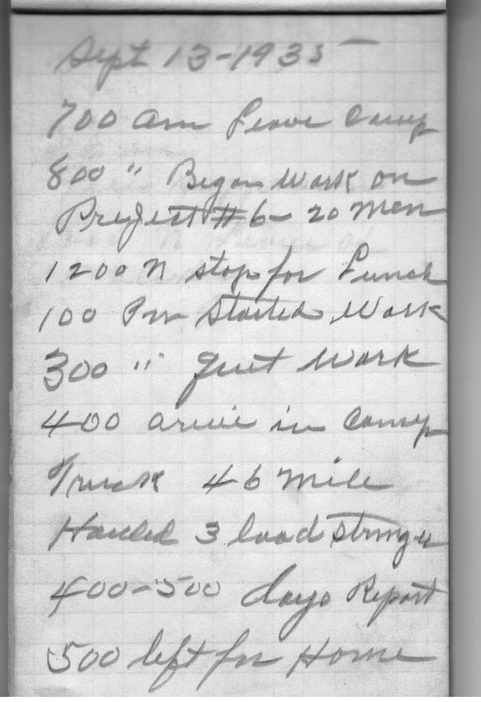 Sept 13-1935-
700 am Leave Camp
800 " Began Work on
Project #6- 20 Men
1200 N stop for Lunch
100 Pm Started Work
300 " Quit Work
400 arive in Camp
Truck 46 Mile
Hauled 3 load Stringer
400-500 days Report
500 left for Home